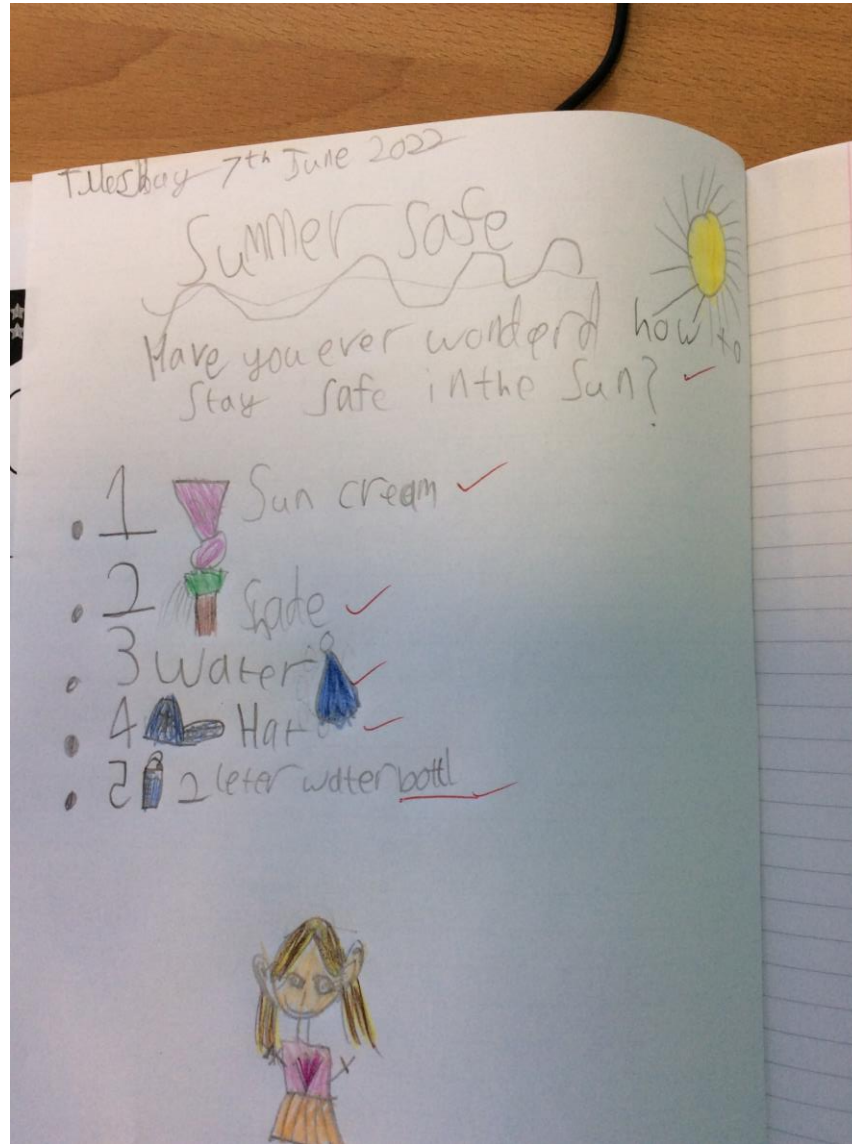 Tuesday 7th June 2022
Summer Safe
Have you ever wonderd how to
stay safe in the Sun?
1 Sun cream
2 Shade
3 Water
4 Hat
5 2 leter water bottl